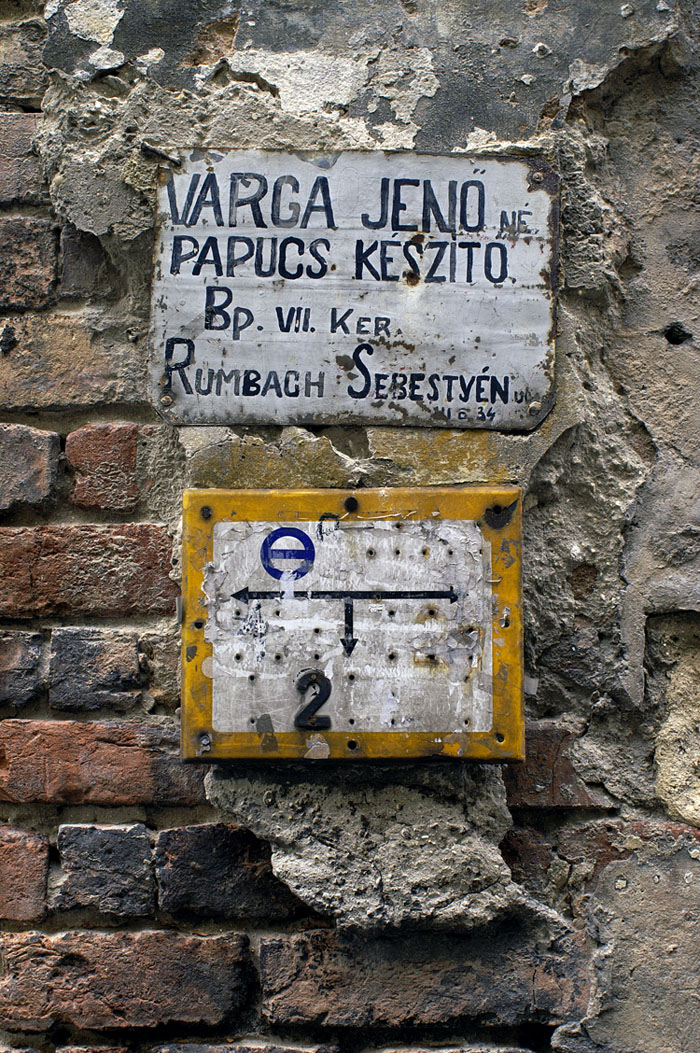 VARGA JENŐ NÉ
PAPUCS KÉSZÍTŐ.
Bp. VII. KER.
RUMBACH SEBESTYÉN u
34
2